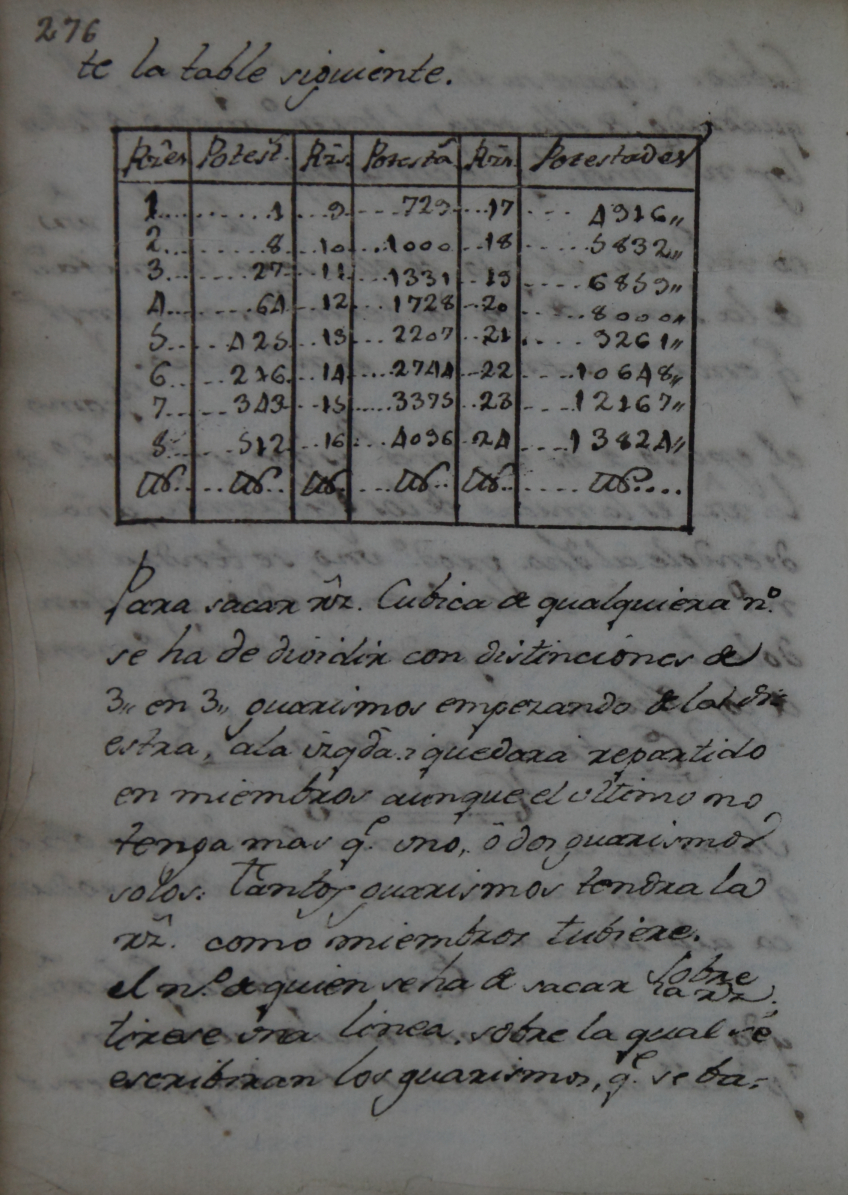 276
te la table siguiente.
Rz̃es Potest̃. Rz̃s. Potestã Rz̃s. Potestades
1.... ....1 ..9 ....729 ..17 .... 4916„
2.... ....8 ..10 ...1000 ..18 .... 5832„
3.... ....27 ..11 ...1331 ..19 .... 6859„
4.... ....64 ..12 ...1728 ..20 .... 8000„
5.... ...125 ..13 ...2207 ..21 .... 9261„
6.... ...216 ..14 ....2744 ..22 ....10648„
7.... ...343 ..15 ....3375 ..23 ....12167„
8.... ...512 ..16 ...4096 ..24 ....13824„
Para sacar rz̃. Cubica de qualquiera n.º
se ha de dividir con distinciones de
3„ en 3„ guarismos empezando de la di-
estra, ala izqda. i quedará repartido
en miembros aunque el ultimo no
tenga mas q.e uno, ó dos guarismos
solos. Tantos guarismos tendra la
rz̃. como miembros tubiere.
el n.º de quien se ha de sacar la rz̃. Sobre
tirese una linea, sobre la qual se
escribiran los guarismos, q.e se ba-